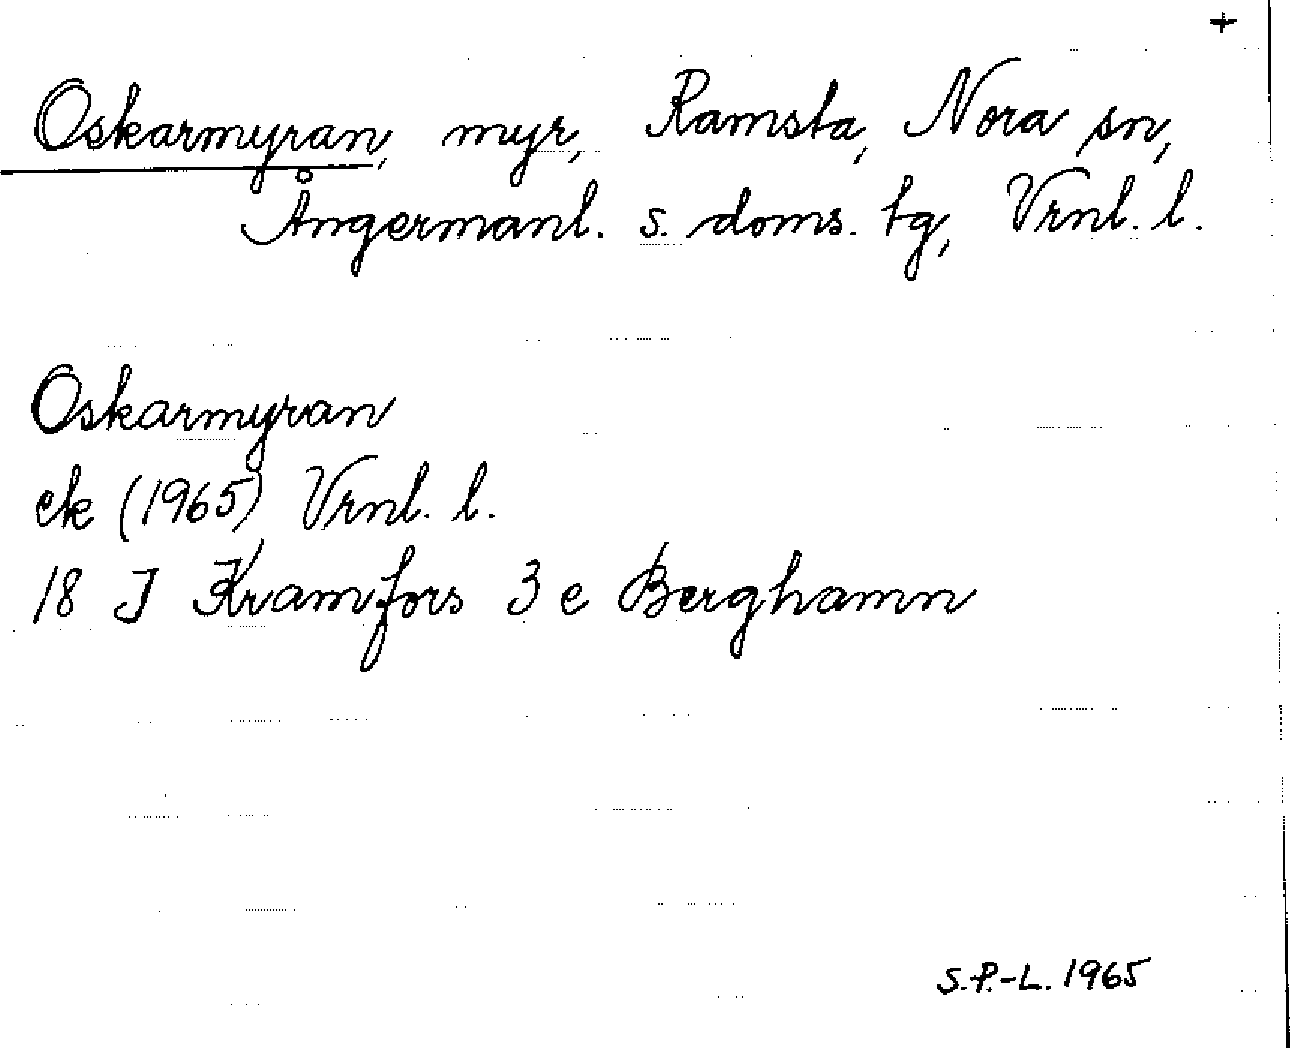 +
Oskarmyran, myr, Ramsta, Nora sn,
Ångermanl. s. doms. tg, Vrnl. l.
Oskarmyran
ek (1965) Vrnl. l.
18 J Kramfors 3 e Berghamn
S.P.-L. 1965